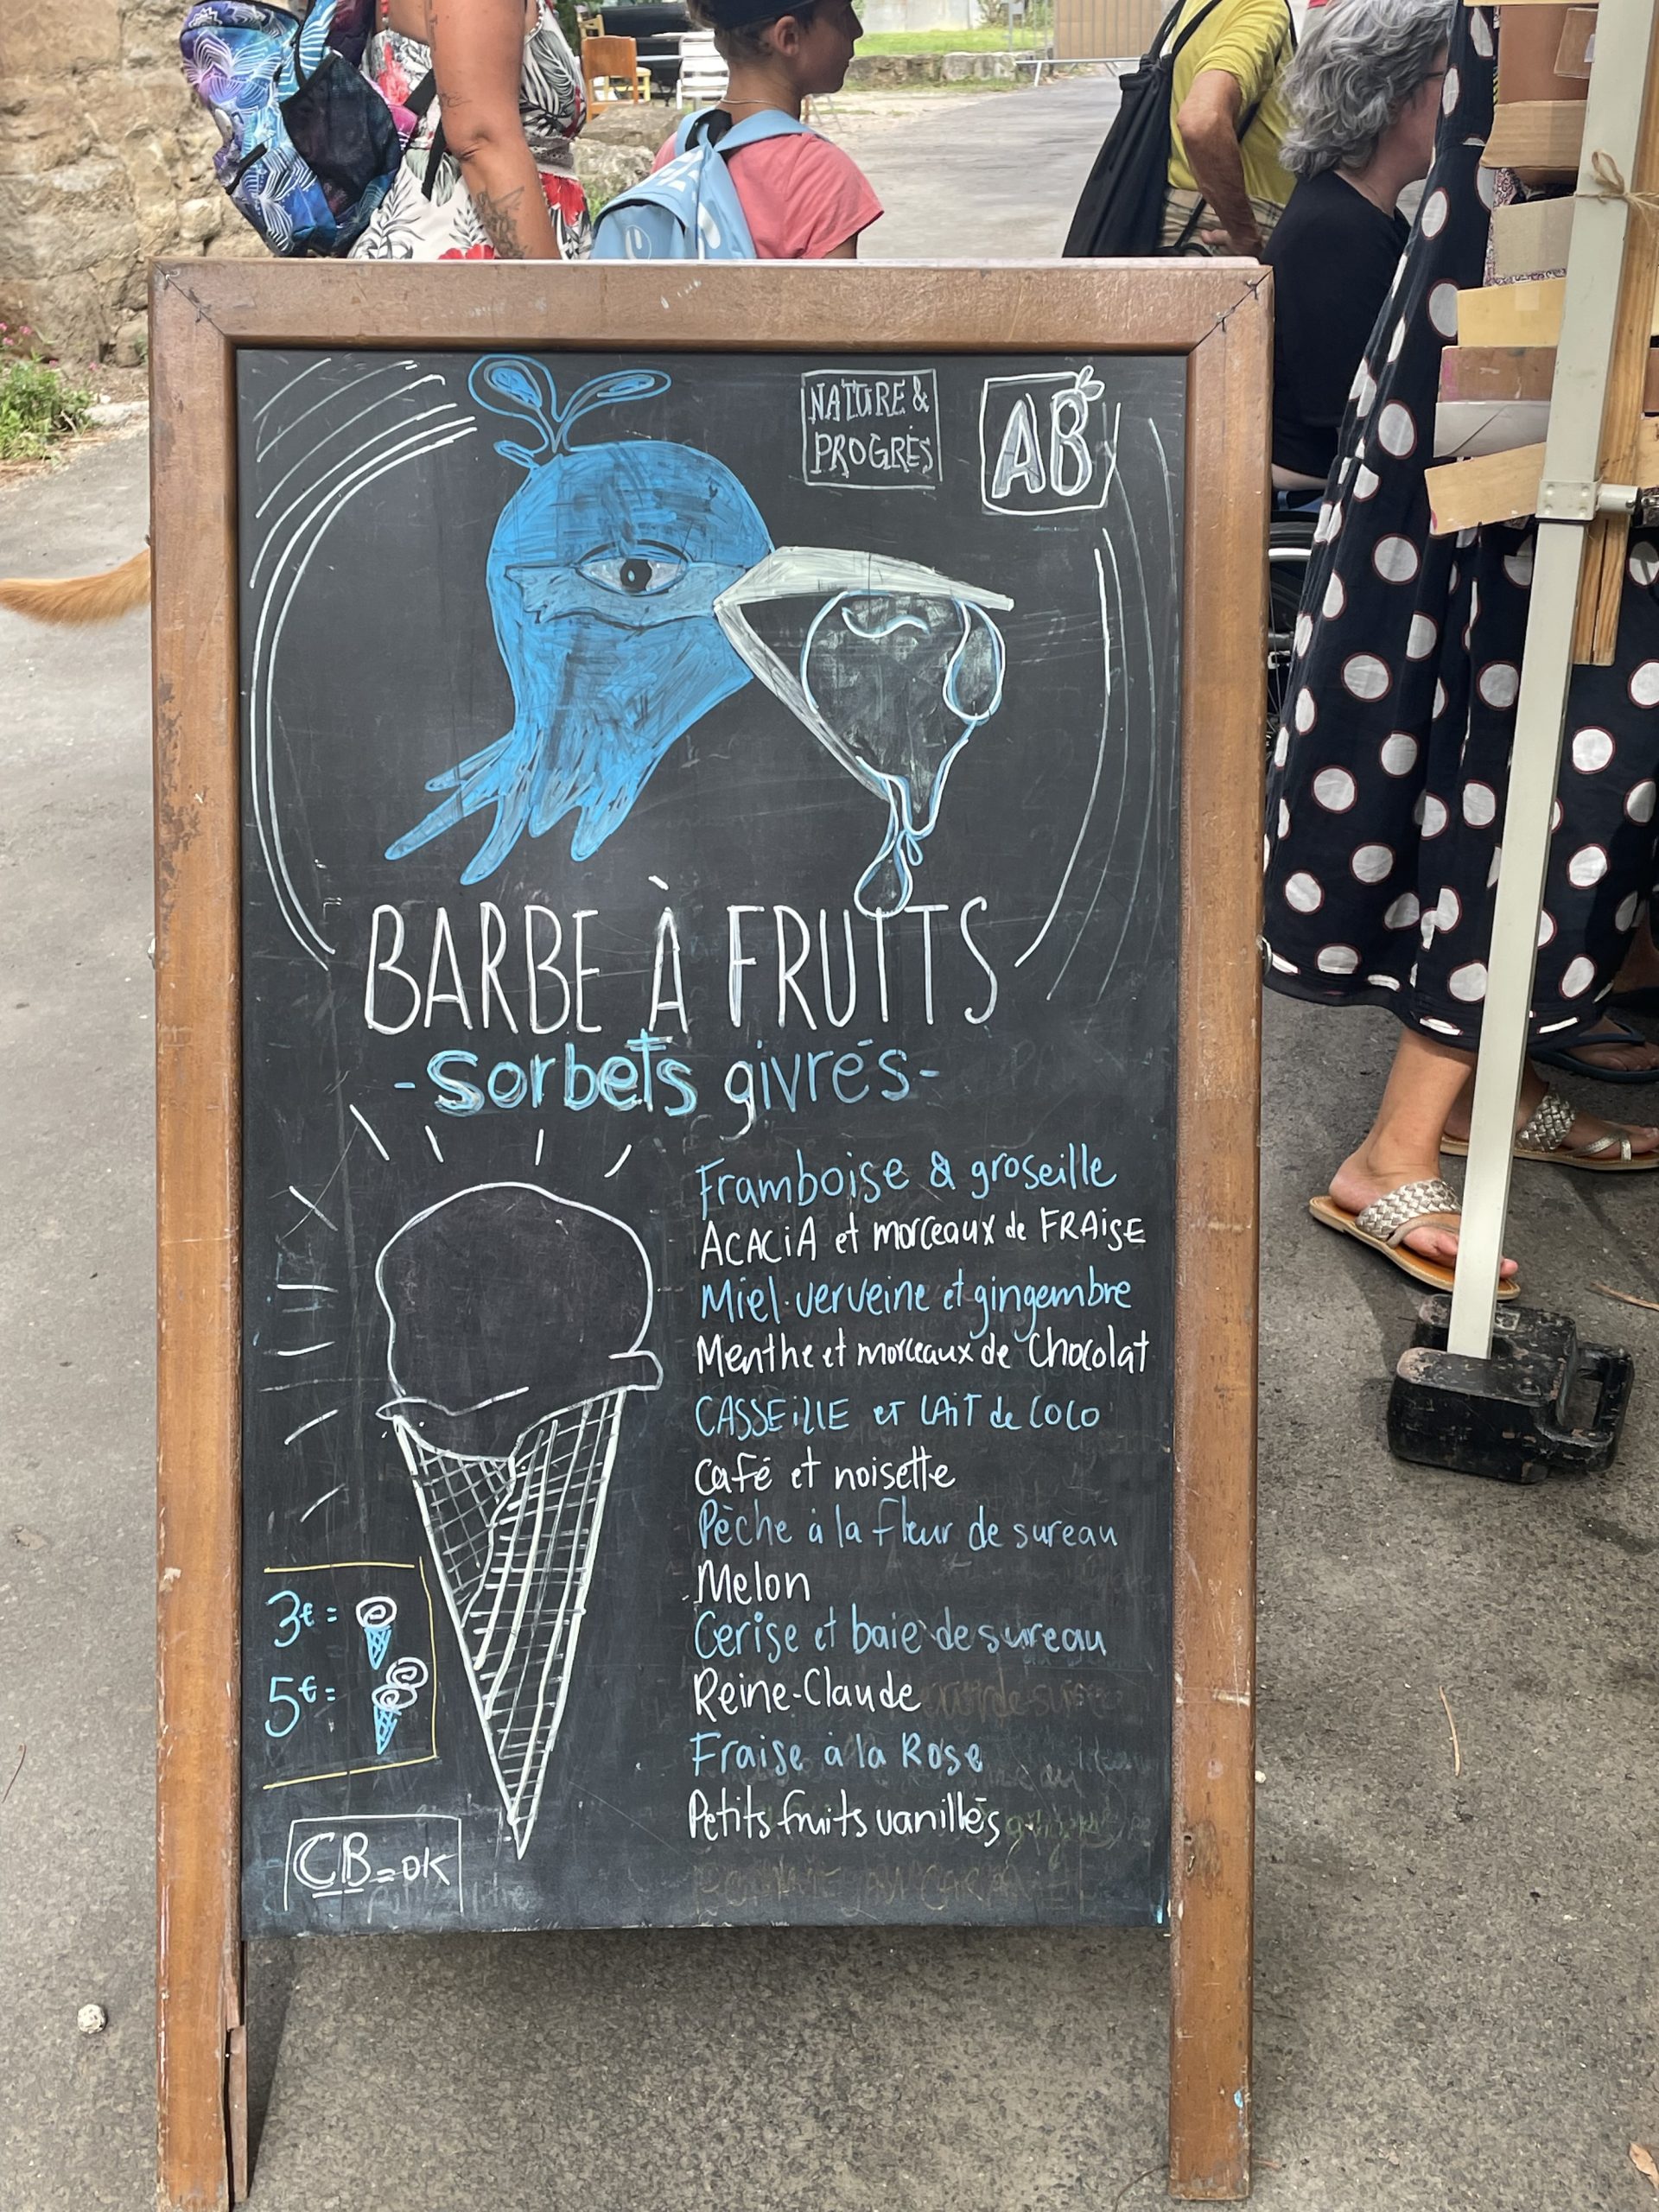 NATURE &
PROGRÈS
AB
BARBE À FRUITS
-sorbets givrés-
Framboise & groseille
ACACiA et morceaux de FRAiSE
Miel-verveine et gingembre
Menthe et morceaux de Chocolat
CASSEiLLE et LAiT de COCO
Café et noisette
Pèche à la fleur de sureau
Melon
Cerise et baie de sureau
Reine-Claude
Fraise à la Rose
Petits fruits vanillés
3€ =
5€ =
CB = OK